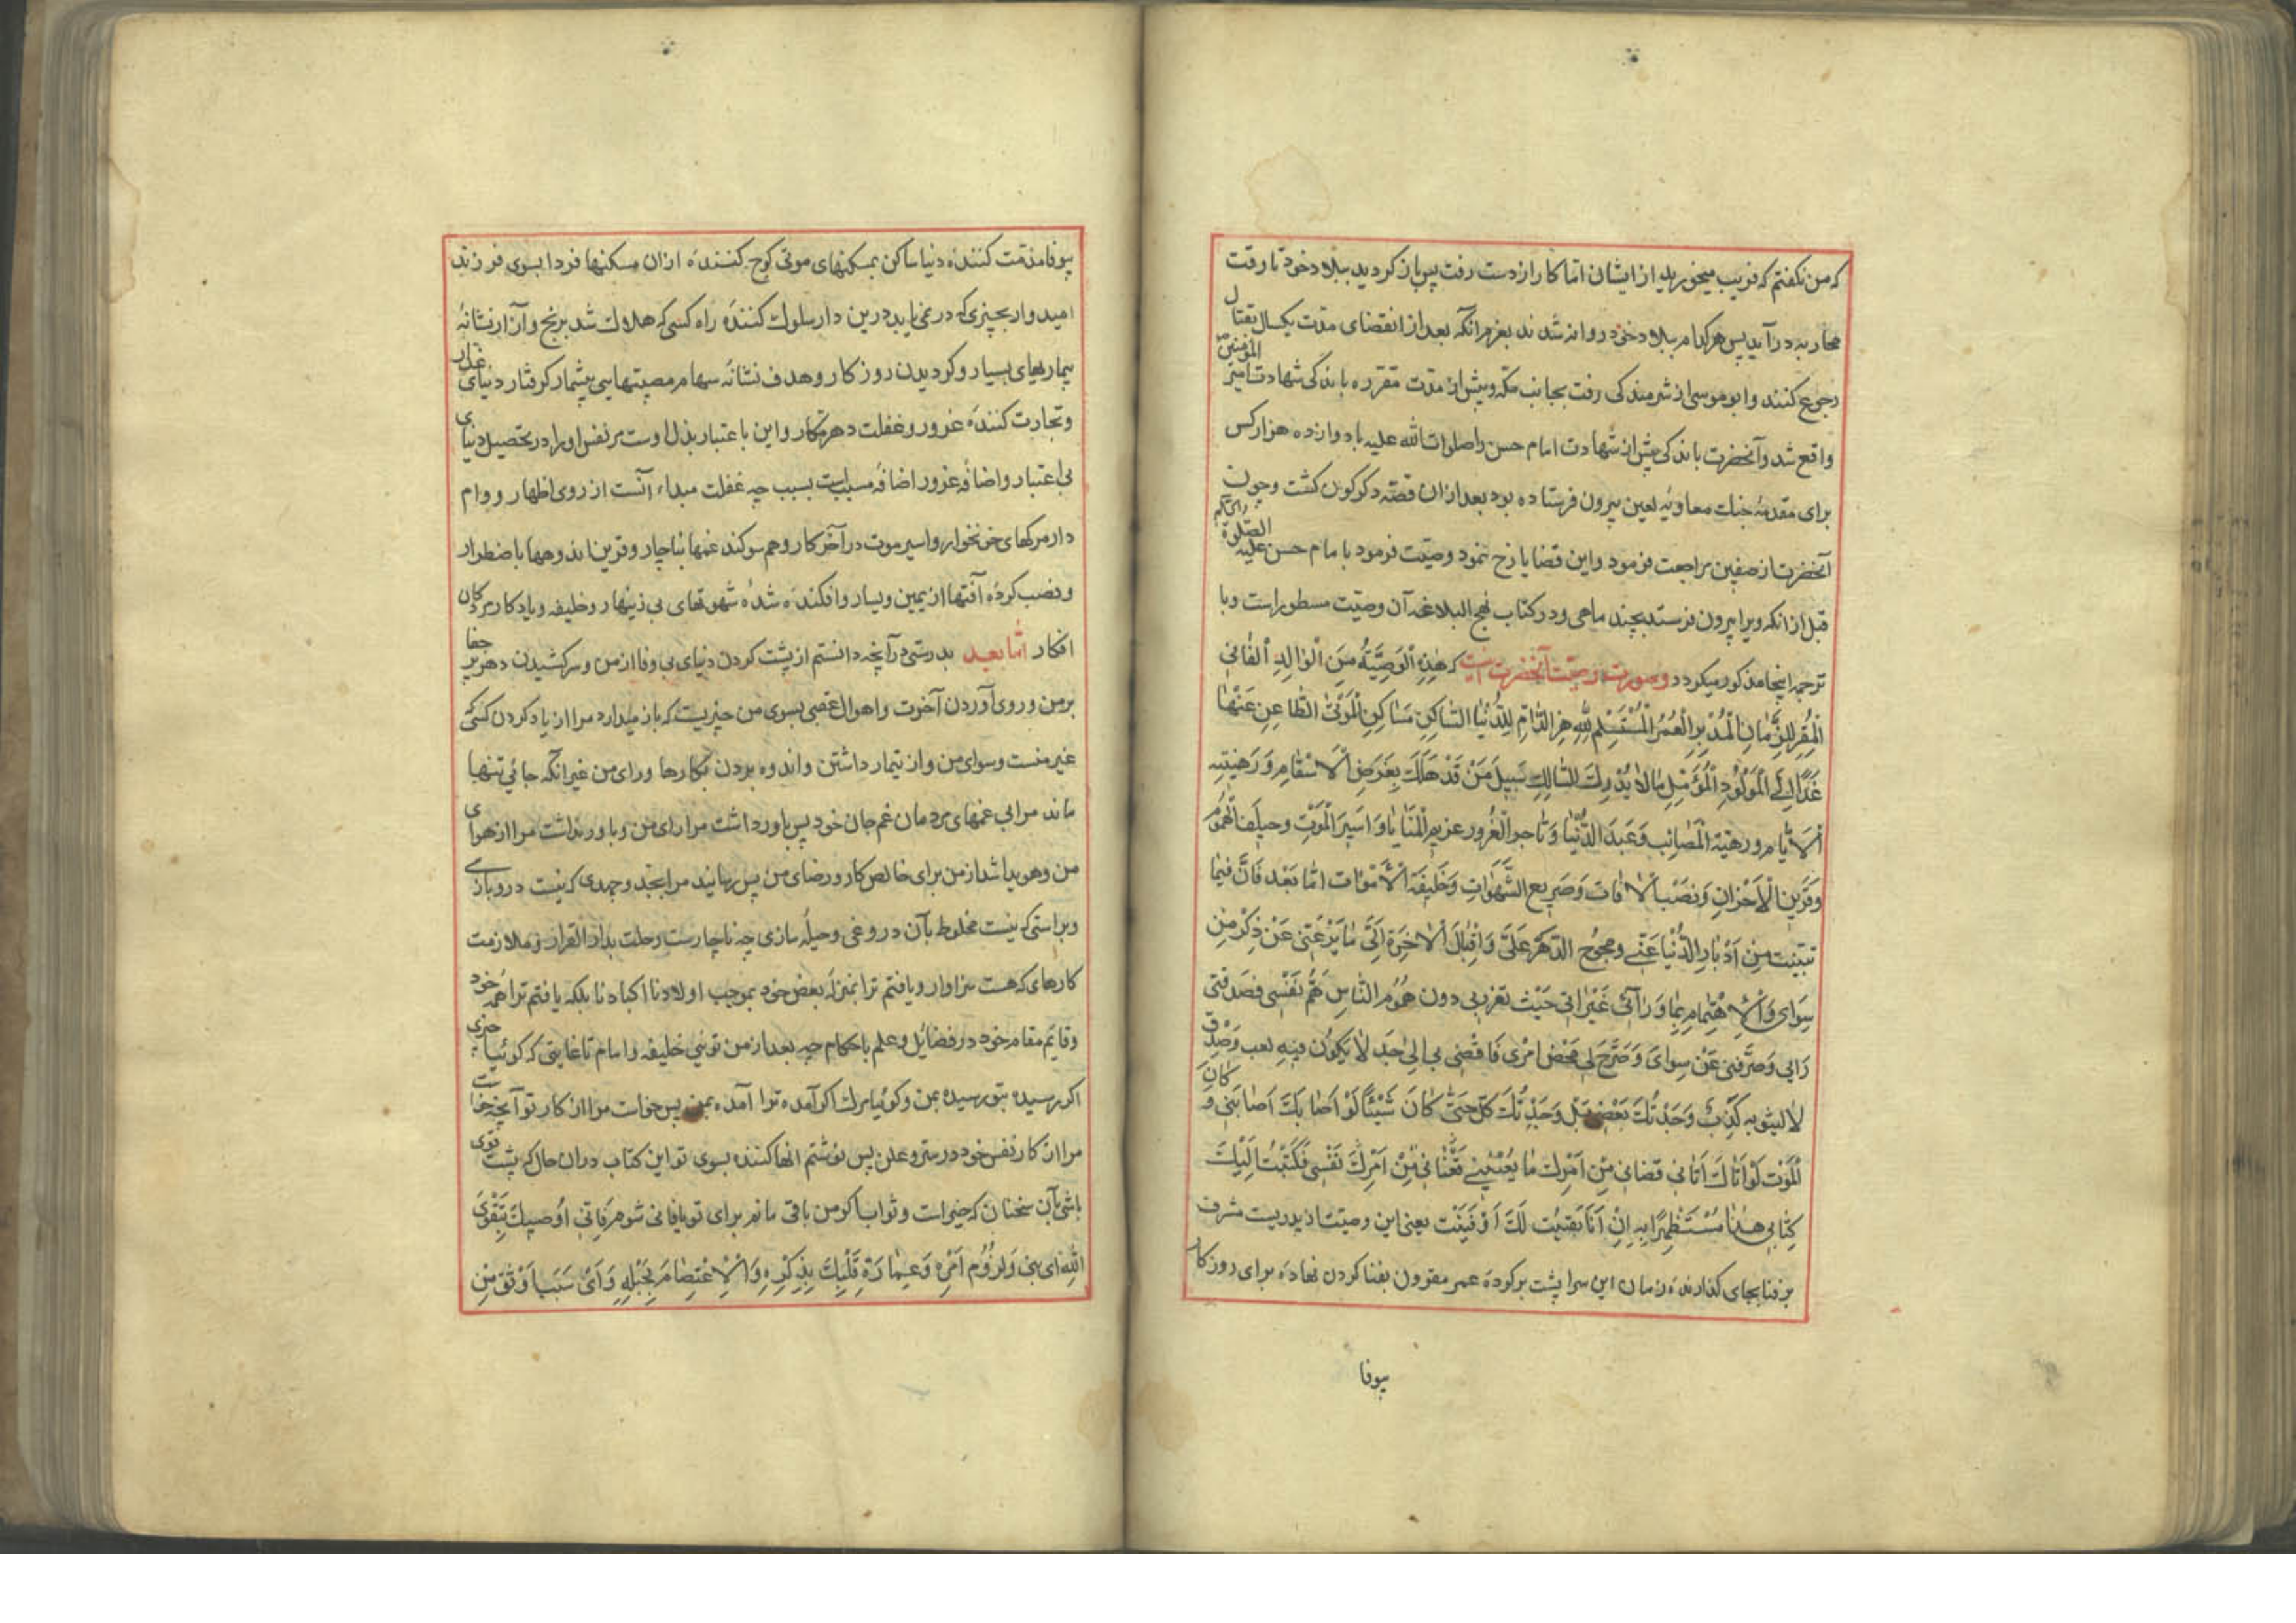 که من نکفتم که فریب میخورید از ایشان اما کار از دست رفت پس باز کردید ببلاد خود تا وقت
محاربه درآید پس هرکدام ببلاد خود روانه شدند بعزم انکه بعد از انقضای مدت یکسال بقتال
رجوع کنند و ابو موسی از شرمندکی رفت بجانب مکه و پیش از مدت مقرره باندکی شهادت امیر المؤمنین
واقع شد و آنحضرت باندکی پیش از شهادت امام حسن را صلوات الله علیه با دوازده هزار کس
برای مقدمهٔ جنک معاویهٔ لعین بیرون فرستاده بود بعد از ان قصه دکرکون کشت و چون
آنحضرت از صفین مراجعت فرمود و این قضایا رخ نمود وصیت فرمود با مام حسن علیه الصلوة
قبل از انکه ویرا بیرون فرستد بچند ماهی و در کتاب نهج البلاغه آن وصیت مسطور است و با
ترجمه اینجا مذکور میکردد وصورت وصیت آنحضرت اینست که هٰذِهِ الْوَصِیَّةُ مِنَ الْوٰالِدِ الْفٰانِی
الْمُقِرِّ لِلزَّمٰانِ الْمُدْبِرِ الْعُمُرِ الْمُسْتَسْلِمِ لِلّٰهِ هِرِ الذّٰامِّ لِلدُّنْیٰا السّٰاکِنِ مَسٰاکِنَ الْمَوْتیٰ الظّٰاعِنِ عَنْهٰا
غَدًا اِلَی الْمَوْلُودِ الْمُؤَمِّلِ مٰا لاٰ یُدْرِكُ السّٰالِكِ سَبِیلَ مَنْ قَدْ هَلَكَ بِغَرَضِ الْاَسْقٰامِ وَرَهِینَتِه
اْلاَیّٰام و رهیة الْمَصٰائِب وَعَبدَ الدُّنْیٰا وَتٰاجِرِ الْغُرُور عزیم الْمَنٰایٰا وَاَسِیرَ الْمَوْتِ وحَلِیفَ الْهُمُوْم
وَقَرِینِ الْاَحْزانِ وَنَصْبِ الْاٰفٰات وَصَرِیعِ الشَّهَوٰاتِ وَخَلِیفَةِ الْاَمْوٰات امّٰا بَعْد فَانَّ فیمٰا
تبیّنتُ مِنْ اَدْبٰارِ الدُّنْیٰا عَنّی وجموُح الدَّهْرَ عَلَیَّ وَاِقْبٰالِ الْاٰخِرَة اِلَیَّ مٰا یَزَعُنِی عَنْ ذِکْرِ مَنْ
سِوٰای وَالْاِهْتِمٰام بِمٰا وَرٰآئی غَیْرَ انّی حَیْثُ تفرّدبی دون هُمُومِ النّٰاس هَمُّ نَفْسی فصَدقنی
رَایی وَصَرَّفَنِی عَنْ سِوٰایَ وَصَرَّحَ لِی مَحْضُ امْرِی فَاَفْضٰی بی اِلیٰ جِدٍّ لاٰ یَکُونُ فیهِ لعب وَصِدْقٍ
لاٰ یشوبه کَذِبٌ وَجَدْتُكَ بَعْضِی بَلْ وَجَدْتُكَ کُلّ حَتّٰی کَانَ شَیْئًا لَوْ اَصٰابَكَ اَصٰابَنِی وَ کَانَ
الْمَوْتُ لَوْ اَتٰاكَ اَتٰانی فَعَنٰانِی مِنْ اَمْرِك مٰا یُعْنینی مِنْ اَمْرِ نَفْسِی فَکَتَبْتُ اِلَیْكَ
کِتٰابی هٰذٰا مُسْتَظْهِرًا بِهِ اِنْ اَنَا بَقِیْتُ لَكَ اَوْ فَنِیْت یعنی این وصیتست از پدریست مشرف
بر فنا بجای کذارنده زمان این سرا پشت برکرده عمر مقرون بفنا کردن نهاده برای روزکار
بیوفا
بیوفا مذمت کنندهٔ دنیا ساکن بمسکنهای موتی کوچ کننده از ان مسکنها فردا بسوی فرزند
امیدوار بچیزی که در نمی یابد درین دار سلوك کنندهٔ راه کسی که هلاك شد برنج و آزار نشانهٔ
بیماریهای بسیار و کردیدن روزکار و هدف نشانهٔ سهام مصیبتهای بیشمار کرفتار دنیای غدار
و تجارت کنندهٔ غرور و غفلت دهر مکار و این باعتبار بذل اوست مر نفس او را در تحصیل دنیای
بی اعتبار و اضافهٔ غرور اضافهٔ مسبب است بسبب چه غفلت مبداء آنست از روی اظهار و وام
دار مرکهای خونخوار و اسیر موت در آخر کار و هم سوکند غمها بناچار و قرین اندوهها باضطرار
و نصب کردهٔ آفتها از یمین و یسار و افکنده شدهٔ شهوتهای بی زینهار و خلیفه و یادکار مردکان
افکار امّا بعد بدرستی در آنچه دانستم از پشت کردن دنیای بی وفا از من و سرکشیدن دهر پر جفا
بر من و روی آوردن آخرت و اهوال عقبی بسوی من چیزیست که باز میدارد مرا از یاد کردن کسی که
غیر منست و سوای من و از تیمار داشتن و اندوه بردن بکارها ورای من غیر انکه جائی تنها
ماند مرا بی غمهای مردمان غم جان خود پس باور داشت مرا رای من و باور نداشت مرا از هوای
من و هویدا شد از من برای خالص کار و رضای من پس رسانید مرا بجد و جهدی که نیست در و بازی
و براستی که نیست مخلوط بآن دروغی و حیله سازی چه ناچارست رحلت بدار القرار و ملازمت
کارهای که هست سزاوار و یافتم ترا بمنزلهٔ بعض خود بموجب اولادنا اکبادنا بلکه یافتم ترا همه خود
و قایم مقام خود در فضایل و علم باحکام چه بعد از من توئی خلیفه و امام تا غایتی که کوئیا چیزی
اکر رسیده بتو رسیده بمن و کوئیا مرك اکر آمده ترا آمده بمن پس خواست مرا از کار تو آنچه خواست
مرا از کار نفس خود در سر و علن پس نوشتم انها کننده بسوی تو این کتاب در ان حال که پشت توی
باشی بآن سخنان که خیراست و ثواب اکر من باقی مانم برای تو یا فانی شوم فَاِنّی اوُصیِكَ بِتَقْوَی
اللّٰهِ ای بنی وَلُزُوُمِ اَمْرِهِ وَعِمٰارَةِ قَلْبِكَ بِذِکْرِهِ وَالْاِعْتِصٰامِ بِحَبْلِهِ وَاَیُّ سَبَبٍ اَوْثَق مِنْ